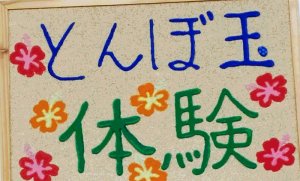 とんぼ玉
体験